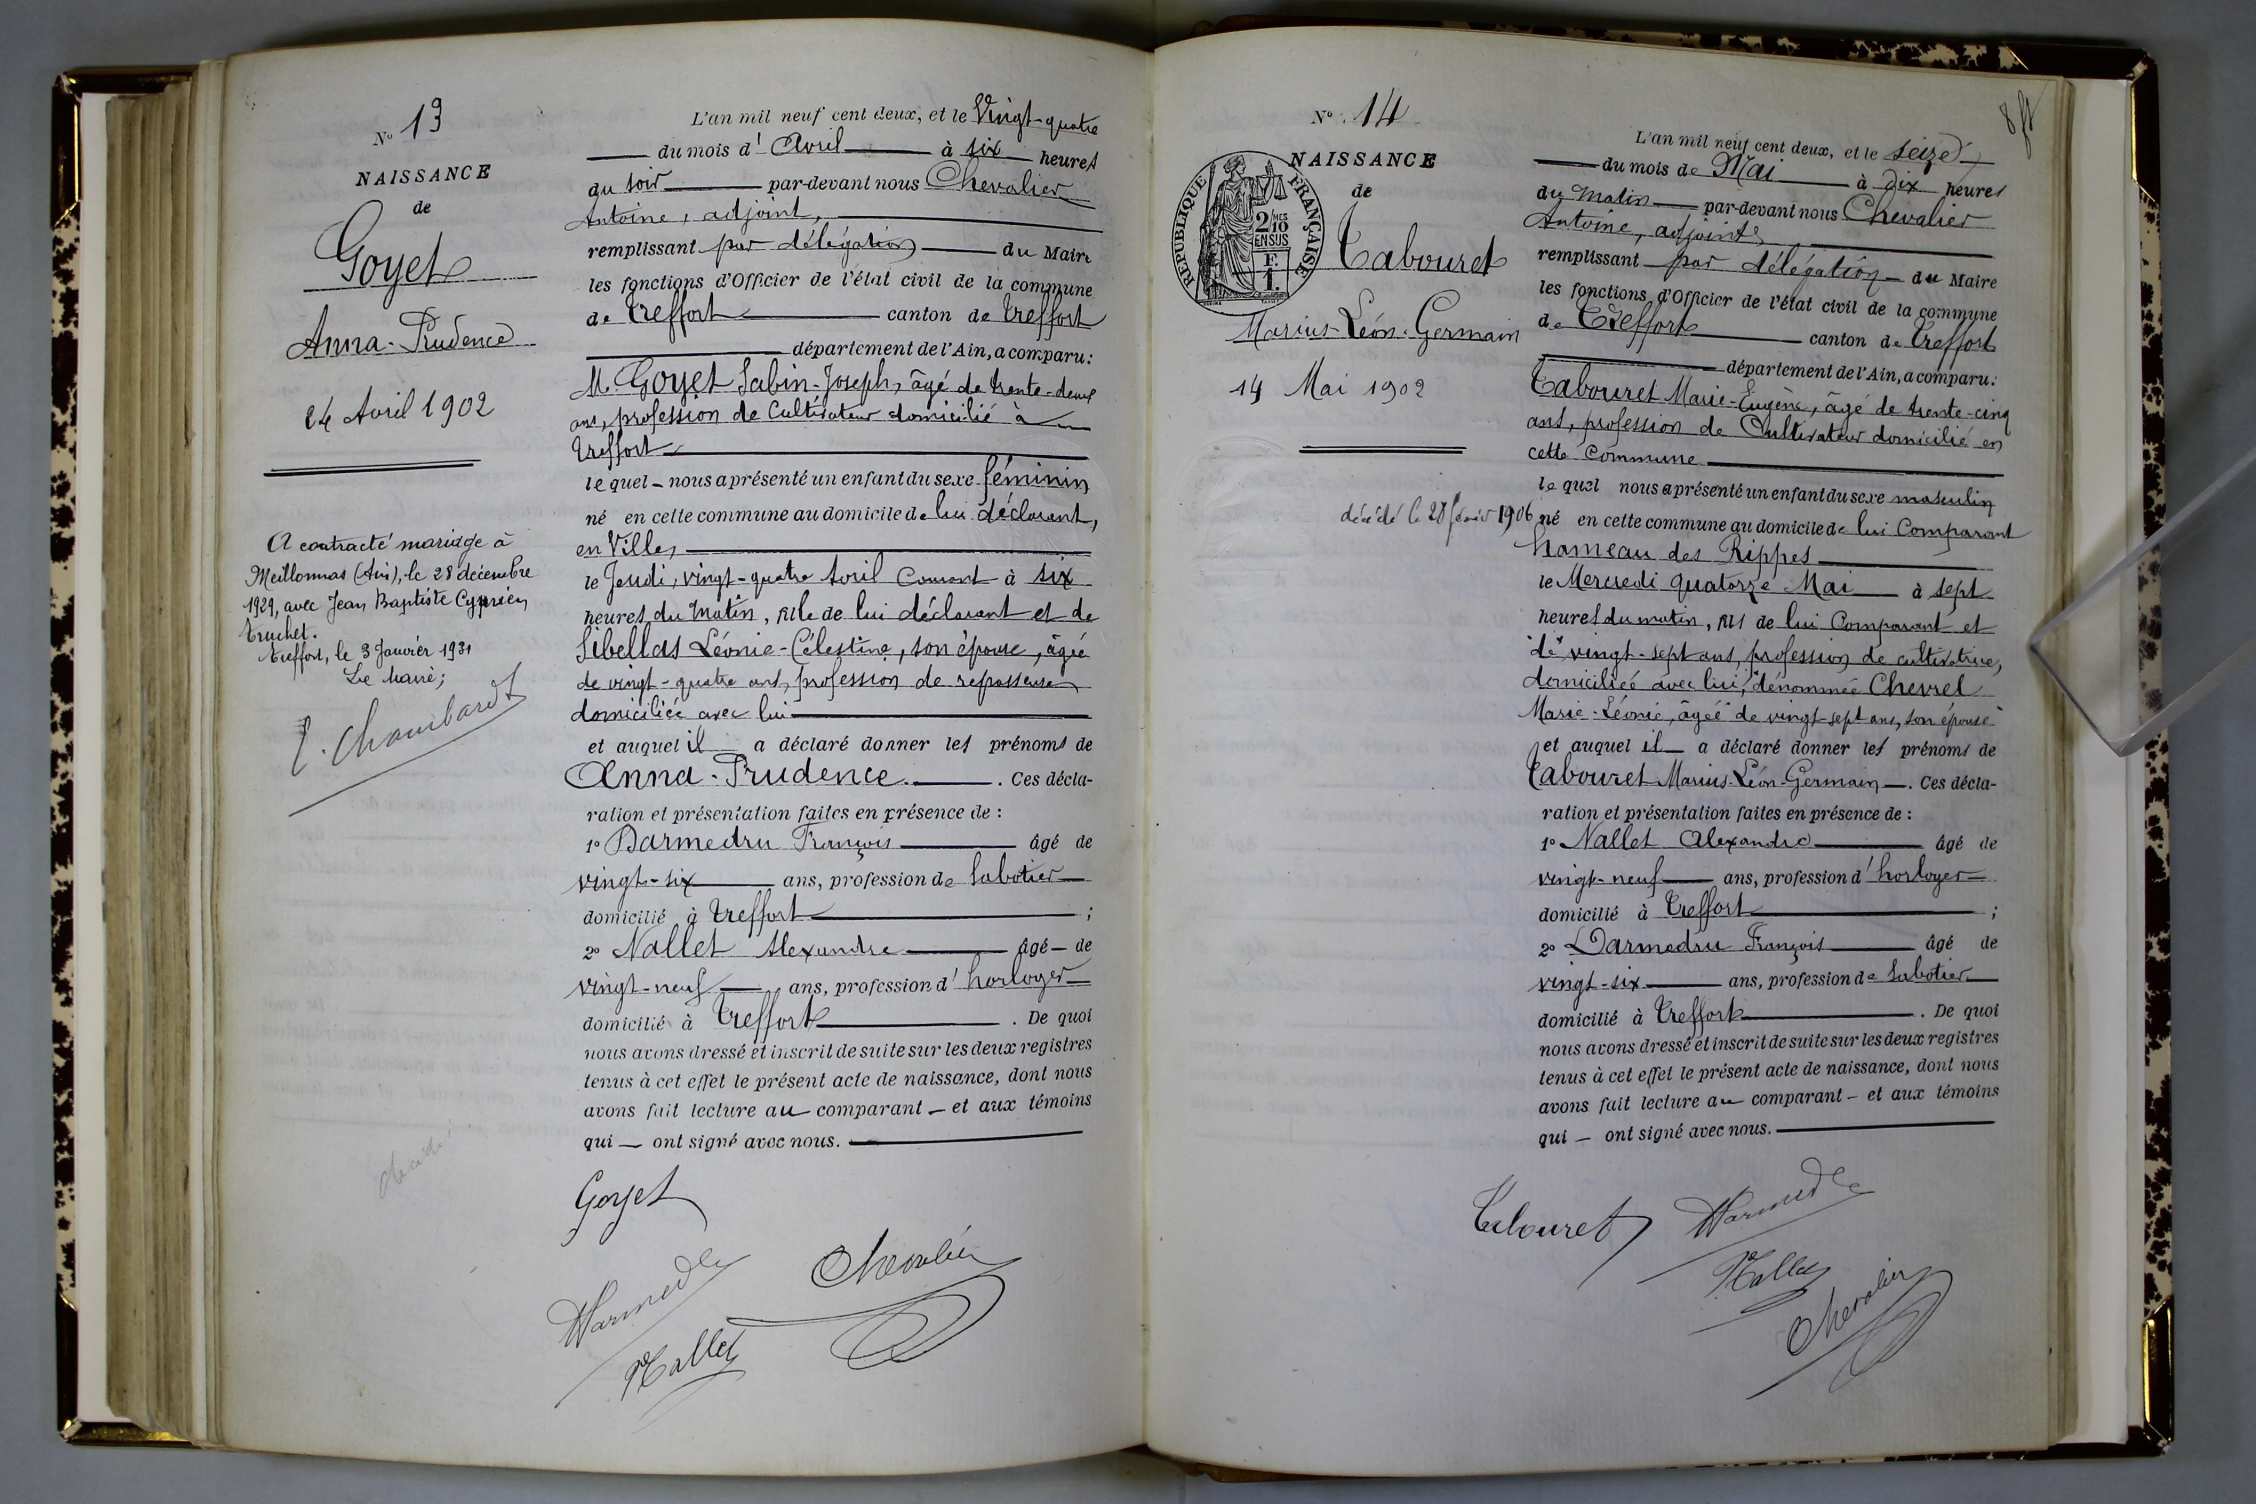 N° 13
NAISSANCE
de
Goyet
Anna-Prudence
24 Avril 1902
A contracté mariage à
Meillonnas (Ain), le 28 décembre
1929, avec Jean Baptiste Cyprien
Truchet.
Treffort, le 3 Janvier 1931
Le Maire;
L'an mil neuf cent deux, et le Vingt-quatre
du mois d'Avril à six heures
du soir par-devant nous Chevalier
Antoine, adjoint,
remplissant par délégation du Maire
les fonctions d'Officier de l'état civil de la commune
de Treffort canton de Treffort
département de l'Ain, a comparu:
M. Goyet Sabin-Joseph, âgé de trente-deux
ans, profession de Cultivateur domicilié à
Treffort
le quel nous a présenté un enfant du sexe féminin
né en cette commune au domicile de lui déclarant,
en Ville,
le Jeudi, vingt-quatre Avril Courant à six
heures du Matin, fille de lui déclarant et de
Sibellas Léonie-Célestine, son épouse, âgée
de vingt-quatre ans, profession de repasseuse
domiciliée avec lui
et auquel il a déclaré donner les prénoms de
Anna-Prudence. Ces décla-
ration et présentation faites en présence de :
1° Darmedru François âgé de
vingt-six ans, profession de Sabotier
domicilié à Treffort ;
2° Nallet Alexandre âgé de
vingt-neuf ans, profession d'horloger
domicilié à Treffort . De quoi
nous avons dressé et inscrit de suite sur les deux registres
tenus à cet effet le présent acte de naissance, dont nous
avons fait lecture au comparant et aux témoins
qui ont signé avec nous.
Goyet
Chevalier
Nallet
8
N° 14
NAISSANCE
de
RÉPUBLIQUE FRANÇAISE
2/10 MES
EN SUS
F.
1.
Tabouret
Marius-Léon-Germain
14 Mai 1902
décédé le 28 février 1906
L'an mil neuf cent deux, et le seize
du mois de Mai à dix heures
du Matin par-devant nous Chevalier
Antoine, adjoint
remplissant par délégation du Maire
les fonctions d'Officier de l'état civil de la commune
de Treffort canton de Treffort
département de l'Ain, a comparu:
Tabouret Marie-Eugène, âgé de trente-cinq
ans, profession de Cultivateur domicilié en
cette Commune
le quel nous a présenté un enfant du sexe masculin
né en cette commune au domicile de lui Comparant
hameau des Rippes
le Mercredi quatorze Mai à sept
heures du matin, fils de lui Comparant et
"de" vingt-sept ans, profession de cultivatrice,
domiciliée avec lui, "dénommée Chevrel
Marie-Léonie, âgée" de vingt-sept ans, son épouse
et auquel il a déclaré donner les prénoms de
Tabouret Marius-Léon-Germain . Ces décla-
ration et présentation faites en présence de :
1° Nallet Alexandre âgé de
vingt-neuf ans, profession d'horloger
domicilié à Treffort ;
2° Darmedru François âgé de
vingt-six ans, profession de Sabotier
domicilié à Treffort . De quoi
nous avons dressé et inscrit de suite sur les deux registres
tenus à cet effet le présent acte de naissance, dont nous
avons fait lecture au comparant et aux témoins
qui ont signé avec nous.
Tabouret
Nallet
Chevalier